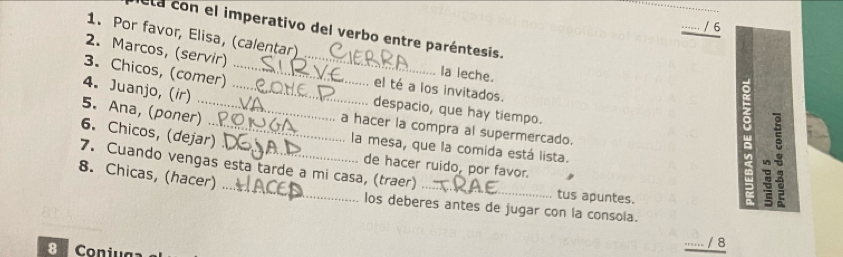 con el imperativo del verbo entre paréntesis.
...... / 6
1. Por favor, Elisa, (calentar) CIERRA la leche.
2. Marcos, (servir) SIRVE el té a los invitados.
3. Chicos, (comer) COMED despacio, que hay tiempo.
4. Juanjo, (ir) VA a hacer la compra al supermercado.
5. Ana, (poner) PONGA la mesa, que la comida está lista.
6. Chicos, (dejar) DEJAD de hacer ruido, por favor.
7. Cuando vengas esta tarde a mi casa, (traer) TRAE tus apuntes.
8. Chicas, (hacer) HACED los deberes antes de jugar con la consola.
...... / 8
8
PRUEBAS DE CONTROL
Unidad 5
Prueba de control